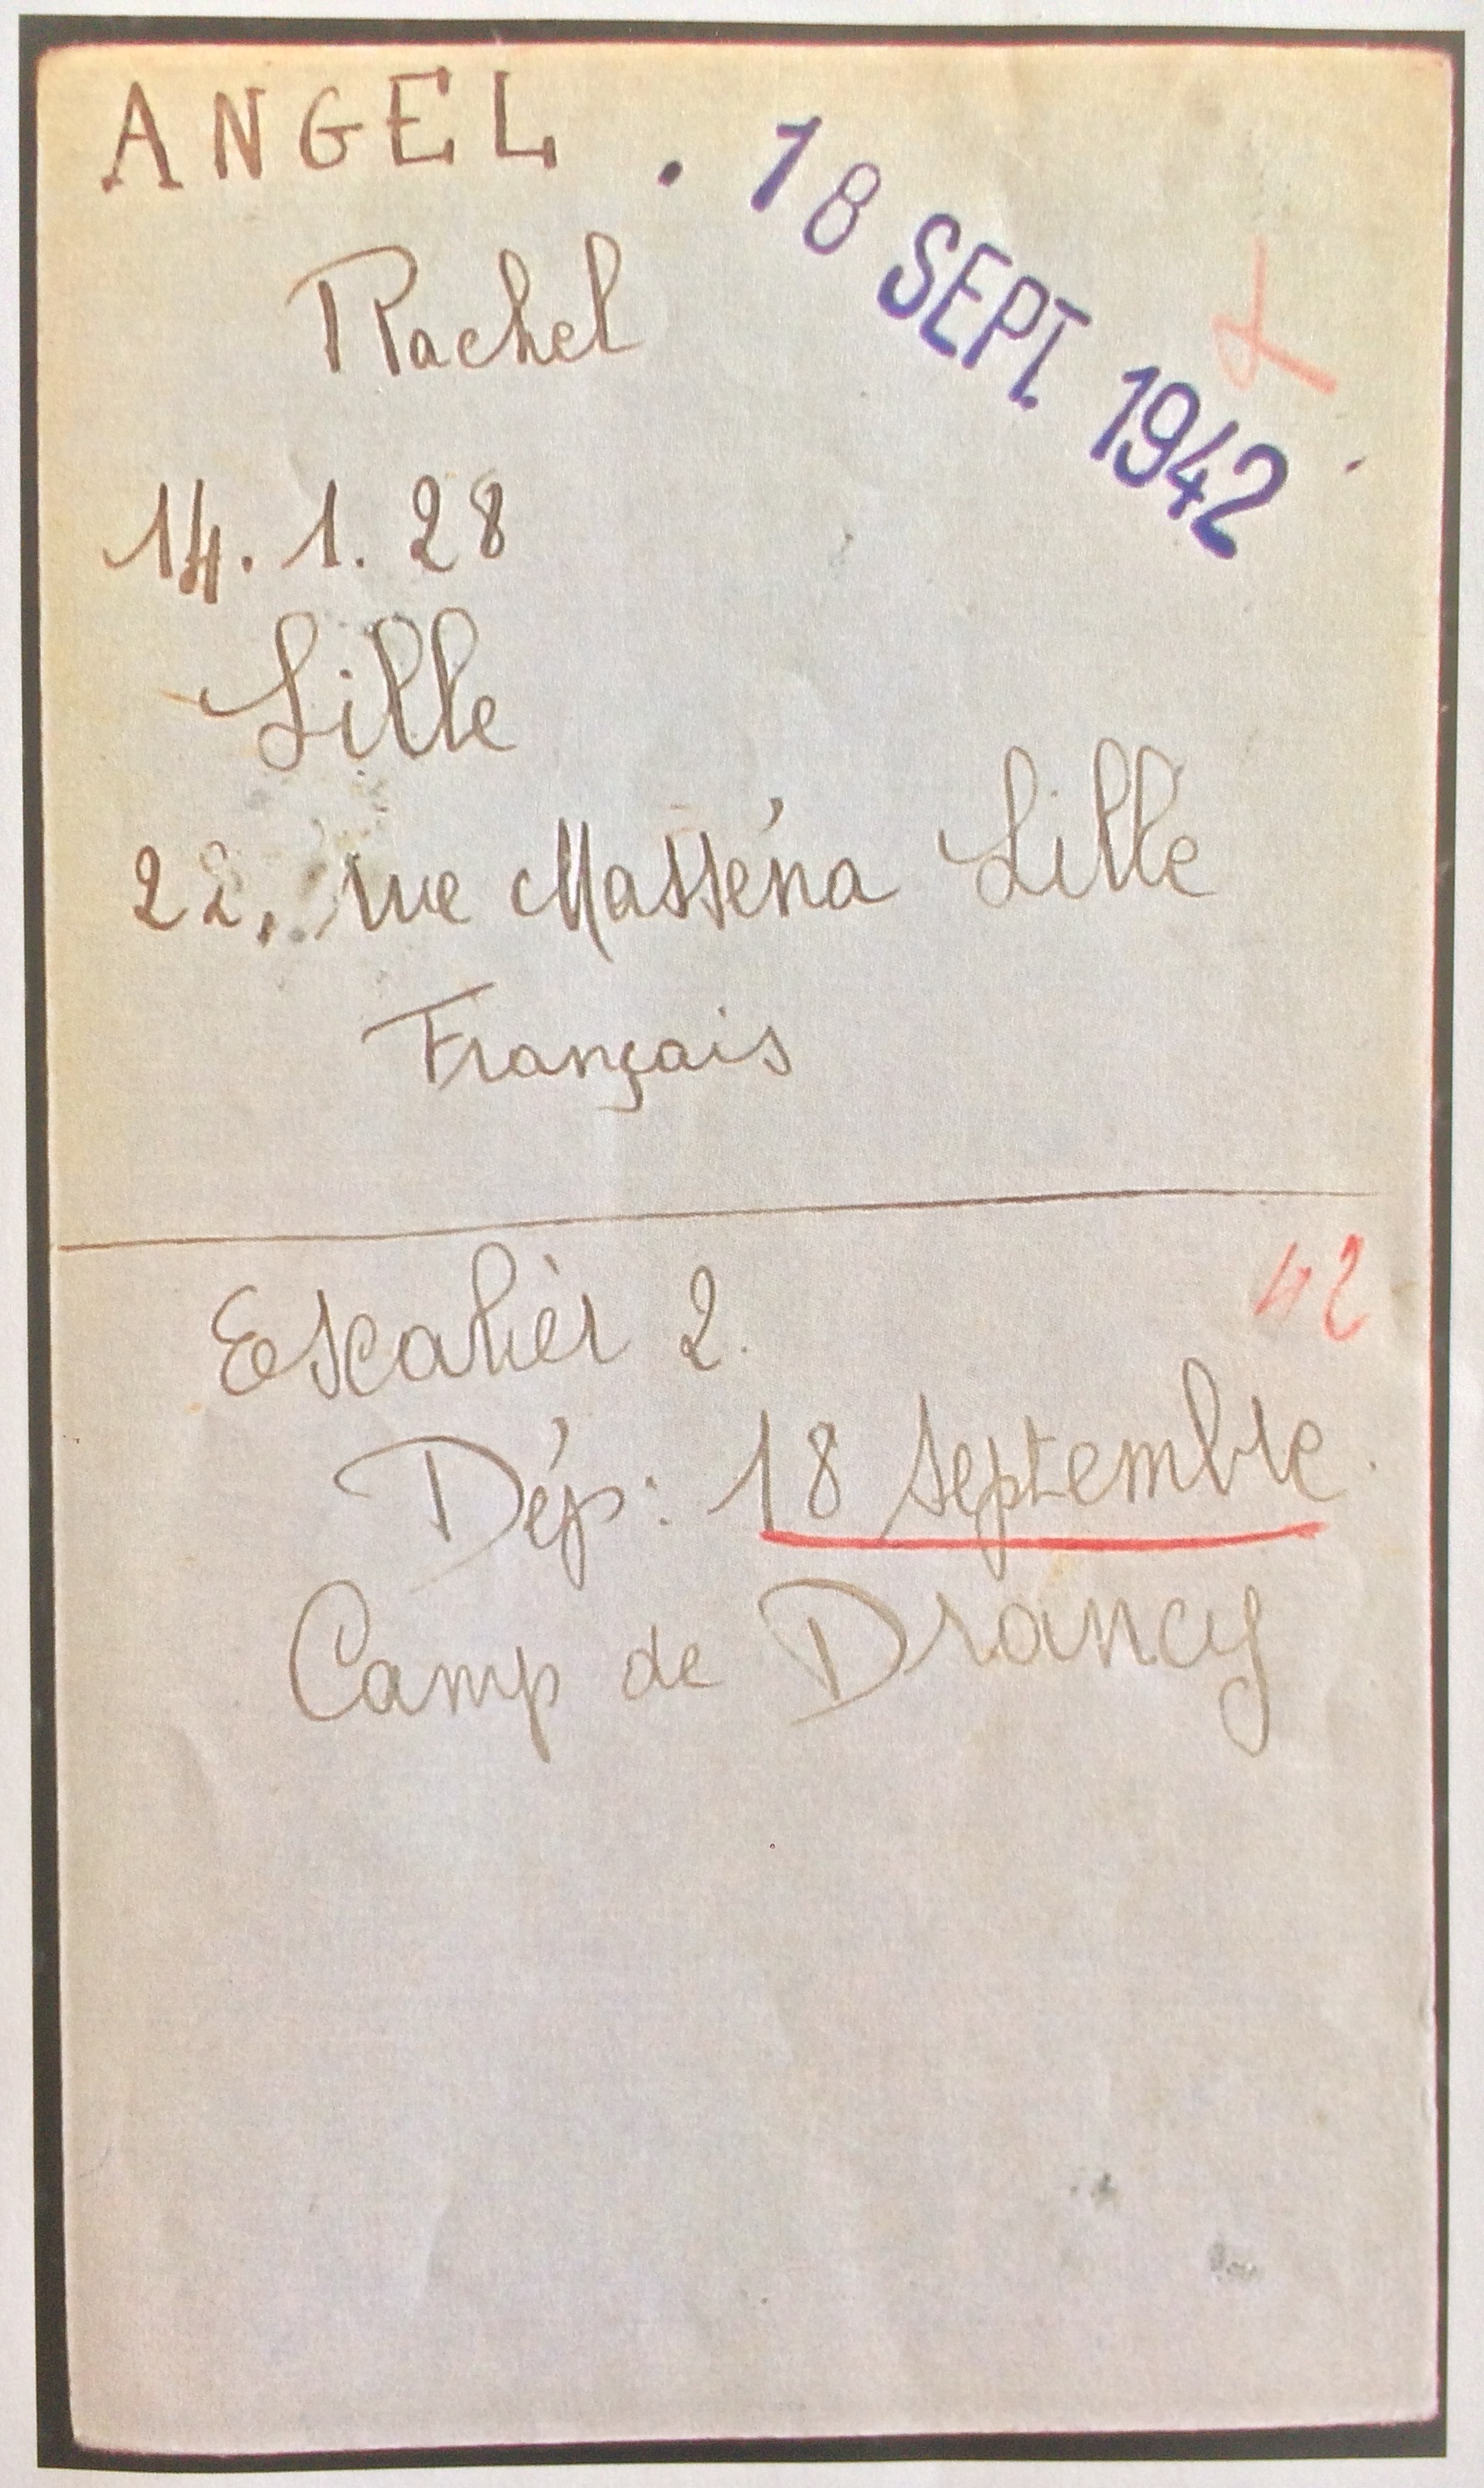 ANGEL
. 18 SEPT. 1942
Rachel
14.1.28
Lille
22, rue Masséna Lille
Français
Escalièr 2.
42
Dép: 18 Septembre.
Camp de Drancy